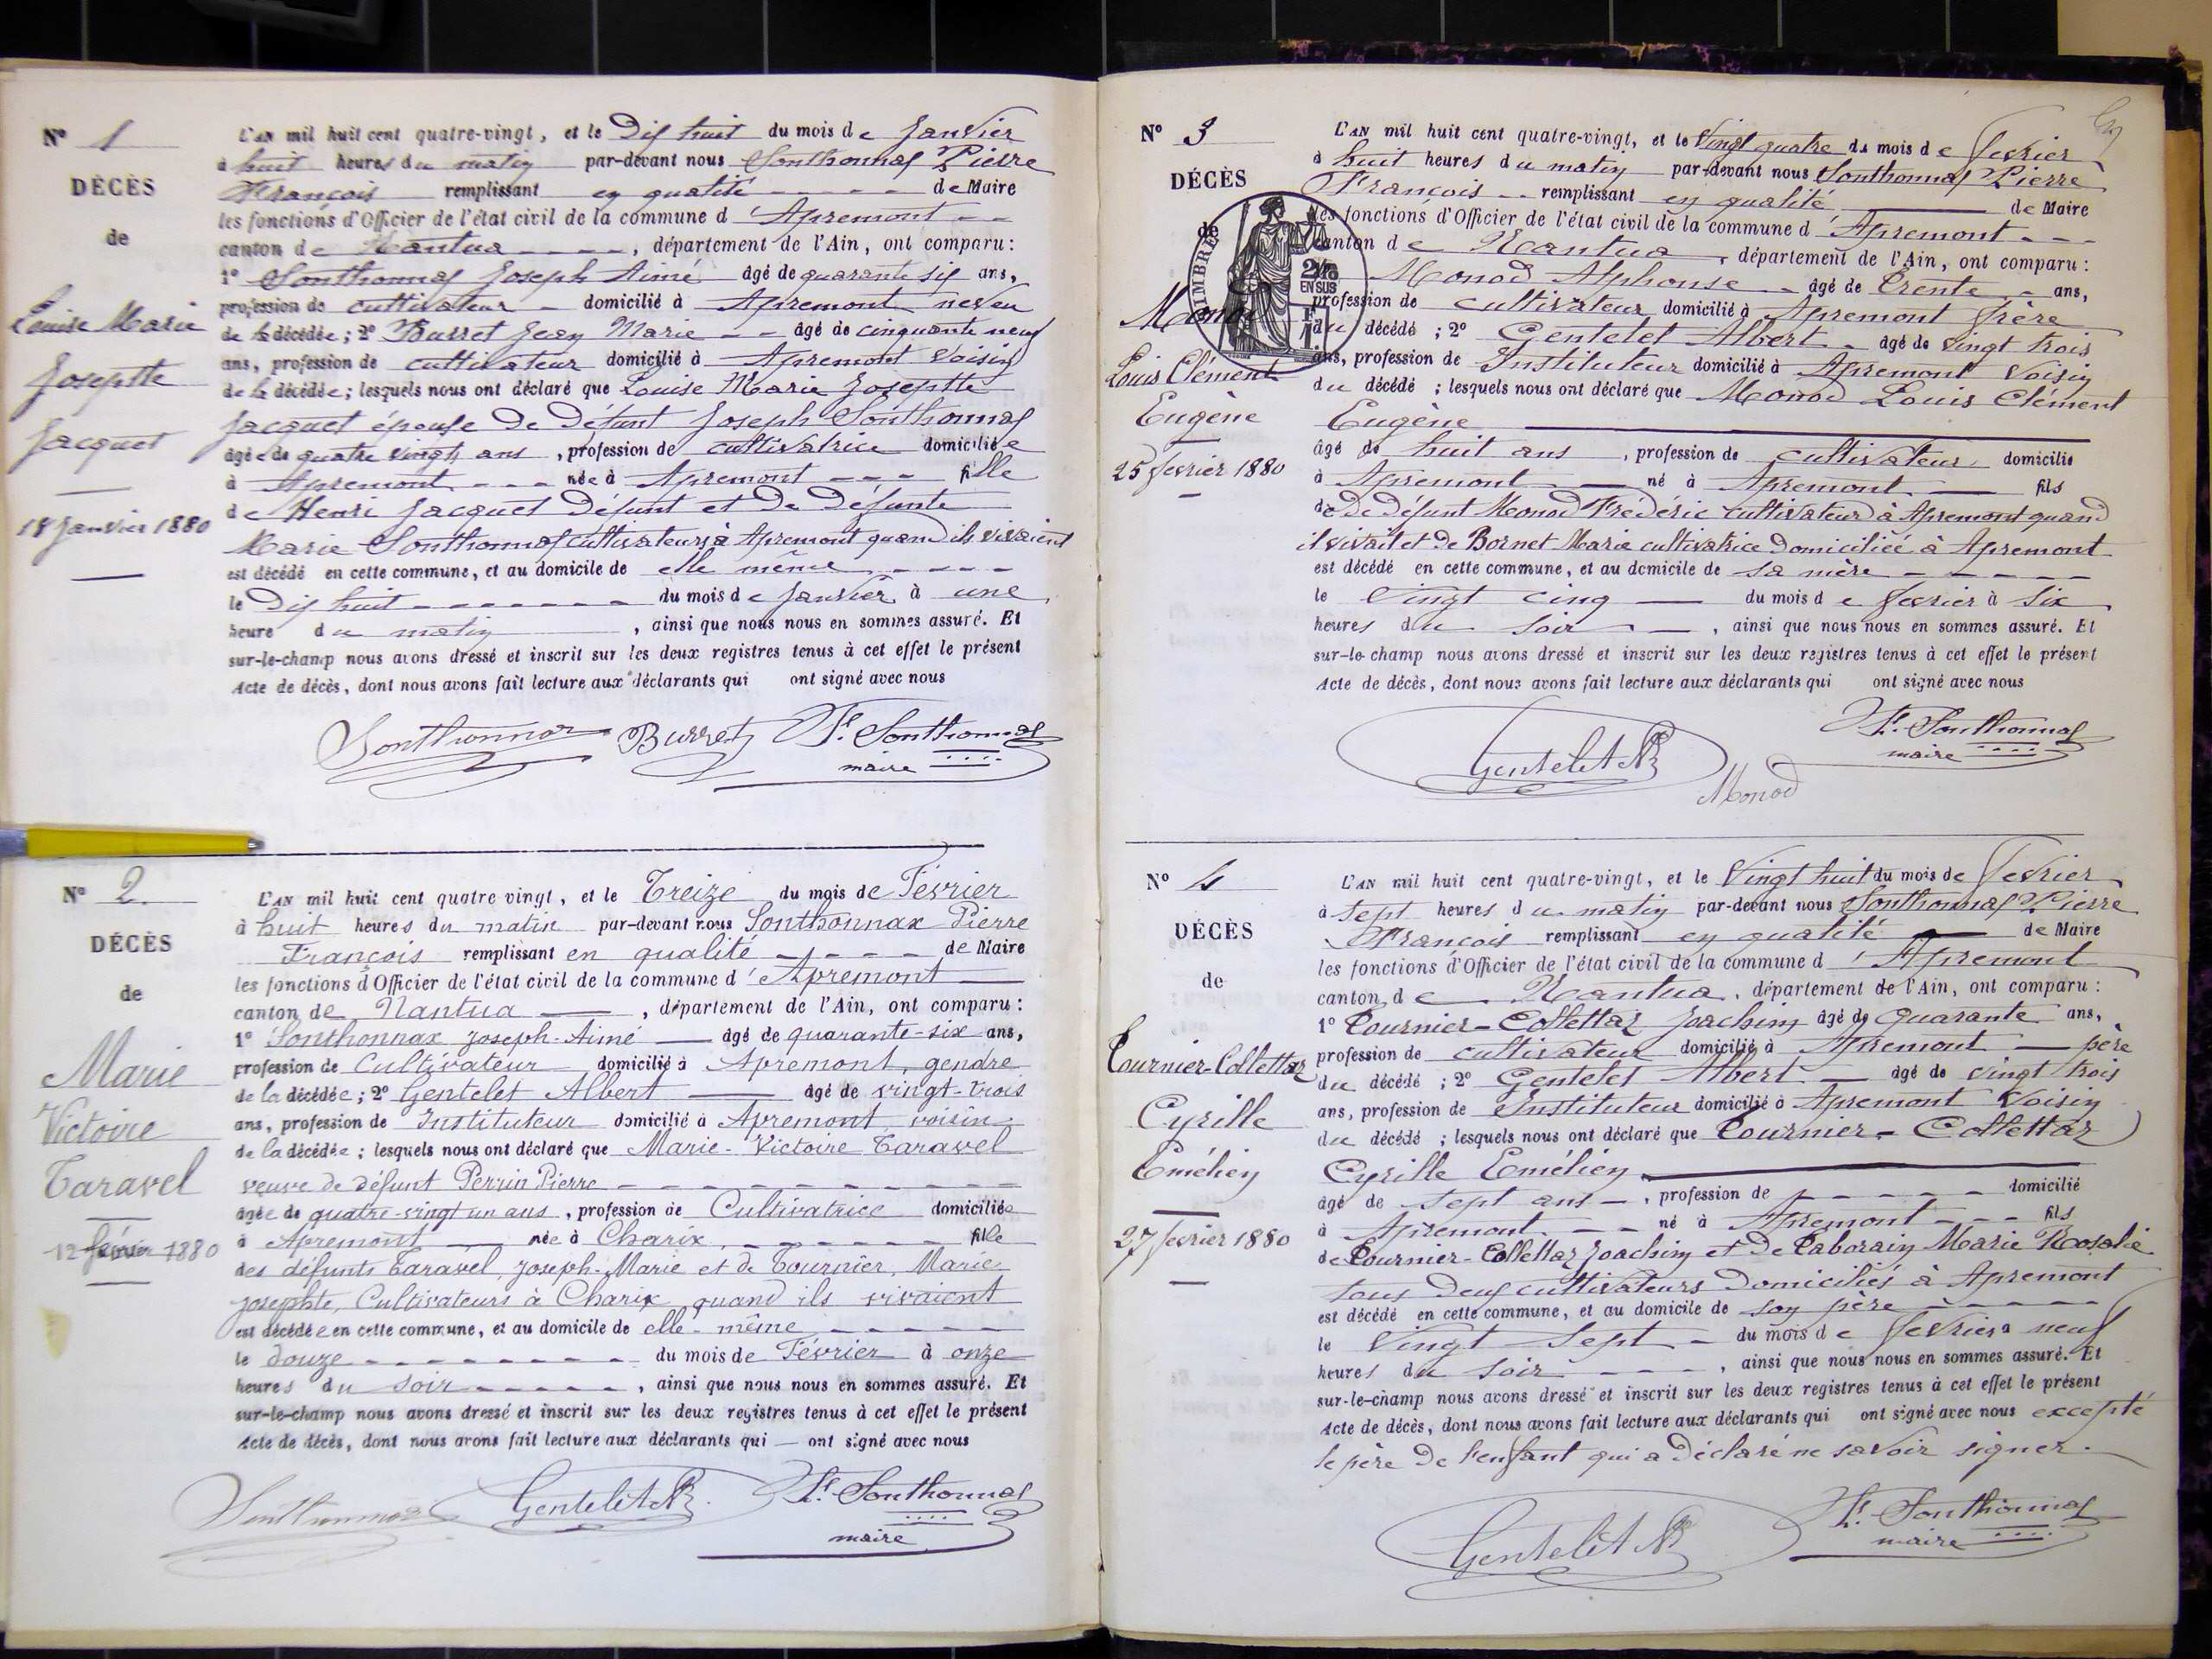 N° 1
DÉCÈS
de
Louise Marie
Josephte
Jacquet
18 Janvier 1880
L'AN mil huit cent quatre-vingt, et le Dix huit du mois de Janvier
à huit heures du matin par-devant nous Sonthonnax Pierre
François remplissant en qualité de Maire
les fonctions d'Officier de l'état civil de la commune d'Apremont
canton de Nantua, département de l'Ain, ont comparu :
1° Sonthonnax Joseph Aimé âgé de quarante six ans,
profession de cultivateur domicilié à Apremont neveu
de la décédée ; 2° Burret Jean Marie âgé de cinquante neuf
ans, profession de cultivateur domicilié à Apremont voisin
de la décédée ; lesquels nous ont déclaré que Louise Marie Josephte
Jacquet épouse de défunt Joseph Sonthonnax
âgée de quatre vingts ans, profession de cultivatrice domiciliée
à Apremont née à Apremont fille
de Henri Jacquet défunt et de défunte
Marie Sonthonnax cultivateurs à Apremont quand ils vivaient
est décédé en cette commune, et au domicile de elle même
le Dix huit du mois de Janvier à une
heure du matin, ainsi que nous nous en sommes assuré. Et
sur-le-champ nous avons dressé et inscrit sur les deux registres tenus à cet effet le présent
Acte de décès, dont nous avons fait lecture aux déclarants qui ont signé avec nous
Sonthonnax Burret F. Sonthonnax
maire
N° 2.
DÉCÈS
de
Marie
Victoire
Taravel
12 février 1880
L'AN mil huit cent quatre vingt, et le Treize du mois de Février
à huit heures du matin par-devant nous Sonthonnax Pierre
François remplissant en qualité de Maire
les fonctions d'Officier de l'état civil de la commune d'Apremont
canton de Nantua, département de l'Ain, ont comparu :
1° Sonthonnax Joseph-Aimé âgé de quarante-six ans,
profession de Cultivateur domicilié à Apremont, gendre
de la décédée ; 2° Gentelet Albert âgé de vingt-trois
ans, profession de Instituteur domicilié à Apremont, voisin
de la décédée ; lesquels nous ont déclaré que Marie-Victoire Taravel
veuve de défunt Perrin Pierre
âgée de quatre-vingt un ans, profession de Cultivatrice domiciliée
à Apremont née à Charix, fille
des défunts Taravel, Joseph-Marie et de Tournier, Marie
Josephte, Cultivateurs à Charix, quand ils vivaient
est décédée en cette commune, et au domicile de elle-même
le douze du mois de Février à onze
heures du soir, ainsi que nous nous en sommes assuré. Et
sur-le-champ nous avons dressé et inscrit sur les deux registres tenus à cet effet le présent
Acte de décès, dont nous avons fait lecture aux déclarants qui ont signé avec nous
Sonthonnax Gentelet F. Sonthonnax
maire
N° 3
DÉCÈS
de
TIMBRE
2/10
EN SUS
Monod
Louis Clément
Eugène
25 fevrier 1880
L'AN mil huit cent quatre-vingt, et le Vingt quatre du mois de fevrier
à huit heures du matin par-devant nous Sonthonnax Pierre
François remplissant en qualité de Maire
les fonctions d'Officier de l'état civil de la commune d'Apremont
canton de Nantua, département de l'Ain, ont comparu :
Monod Alphonse âgé de Trente ans,
profession de cultivateur domicilié à Apremont frère
du décédé ; 2° Gentelet Albert âgé de vingt trois
ans, profession de Instituteur domicilié à Apremont voisin
du décédé ; lesquels nous ont déclaré que Monod Louis Clément
Eugène
âgé de huit ans, profession de cultivateur domicilié
à Apremont né à Apremont fils
de de défunt Monod Frédéric cultivateur à Apremont quand
il vivait et de Bornet Marie cultivatrice domiciliée à Apremont
est décédé en cette commune, et au domicile de sa mère
le Vingt cinq du mois de fevrier à six
heures du soir, ainsi que nous nous en sommes assuré. Et
sur-le-champ nous avons dressé et inscrit sur les deux registres tenus à cet effet le présent
Acte de décès, dont nous avons fait lecture aux déclarants qui ont signé avec nous
Gentelet F. Sonthonnax
maire
Monod
N° 4
DÉCÈS
de
Tournier-Collettaz
Cyrille
Emélien
27 fevrier 1880
L'AN mil huit cent quatre-vingt, et le Vingt huit du mois de fevrier
à sept heures du matin par-devant nous Sonthonnax Pierre
François remplissant en qualité de Maire
les fonctions d'Officier de l'état civil de la commune d'Apremont
canton de Nantua, département de l'Ain, ont comparu :
1° Tournier-Collettaz Joachim âgé de Quarante ans,
profession de cultivateur domicilié à Apremont père
du décédé ; 2° Gentelet Albert âgé de vingt trois
ans, profession de Instituteur domicilié à Apremont voisin
du décédé ; lesquels nous ont déclaré que Tournier-Collettaz
Cyrille Emélien
âgé de sept ans, profession de domicilié
à Apremont né à Apremont fils
de Tournier-Collettaz Joachim et de Taborain Marie Rosalie
tous deux cultivateurs domiciliés à Apremont
est décédé en cette commune, et au domicile de son père
le Vingt Sept du mois de fevrier à neuf
heures du soir, ainsi que nous nous en sommes assuré. Et
sur-le-champ nous avons dressé et inscrit sur les deux registres tenus à cet effet le présent
Acte de décès, dont nous avons fait lecture aux déclarants qui ont signé avec nous excepté
le père de l'enfant qui a déclaré ne savoir signer.
Gentelet F. Sonthonnax
maire